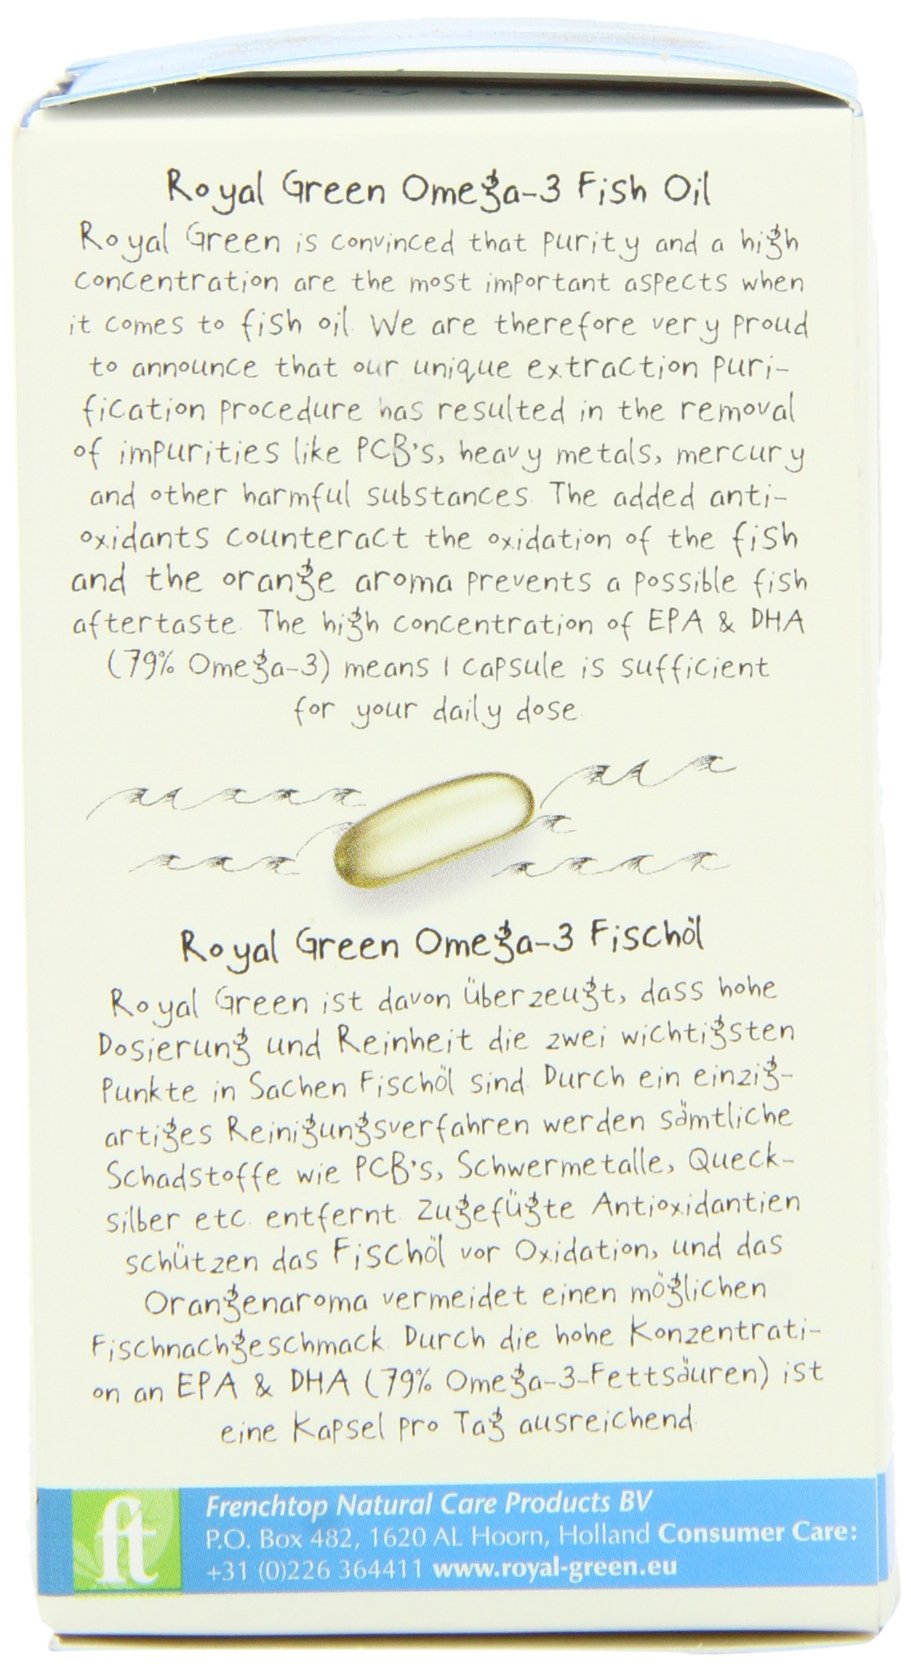 Royal Green Omega-3 Fish Oil
Royal Green is convinced that purity and a high
concentration are the most important aspects when
it comes to fish oil. We are therefore very proud
to announce that our unique extraction puri-
fication procedure has resulted in the removal
of impurities like PCB's, heavy metals, mercury
and other harmful substances. The added anti-
oxidants counteract the oxidation of the fish
and the orange aroma prevents a possible fish
aftertaste. The high concentration of EPA & DHA
(79% Omega-3) means 1 capsule is sufficient
for your daily dose.
Royal Green Omega-3 Fischöl
Royal Green ist davon überzeugt, dass hohe
Dosierung und Reinheit die zwei wichtigsten
Punkte in Sachen Fischöl sind. Durch ein einzig-
artiges Reinigungsverfahren werden sämtliche
Schadstoffe wie PCB's, Schwermetalle, Queck-
silber etc. entfernt. Zugefügte Antioxidantien
schützen das Fischöl vor Oxidation, und das
Orangenaroma vermeidet einen möglichen
Fischnachgeschmack. Durch die hohe Konzentrati-
on an EPA & DHA (79% Omega-3-Fettsäuren) ist
eine Kapsel pro Tag ausreichend.
ft
Frenchtop Natural Care Products BV
P.O. Box 482, 1620 AL Hoorn, Holland Consumer Care:
+31 (0)226 364411 www.royal-green.eu